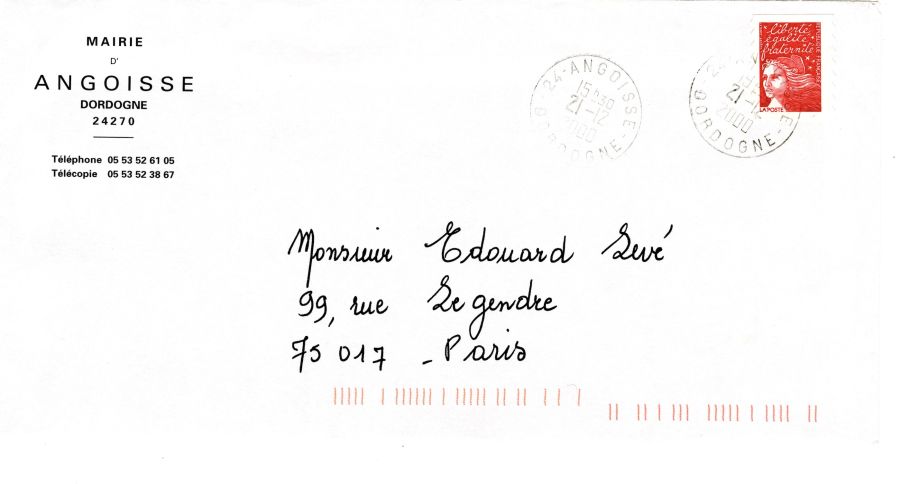 MAIRIE
D'
ANGOISSE
DORDOGNE
24270
Téléphone 05 53 52 61 05
Télécopie 05 53 52 38 67
24-ANGOISSE-
15h30
21-12
2000
DORDOGNE
24-
21-12
2000
DORDOGNE-
liberté
égalité
fraternité
RÉPUBLIQUE FRANÇAISE
LA POSTE
Monsieur Edouard Levé
99, rue Legendre
75 017 - Paris